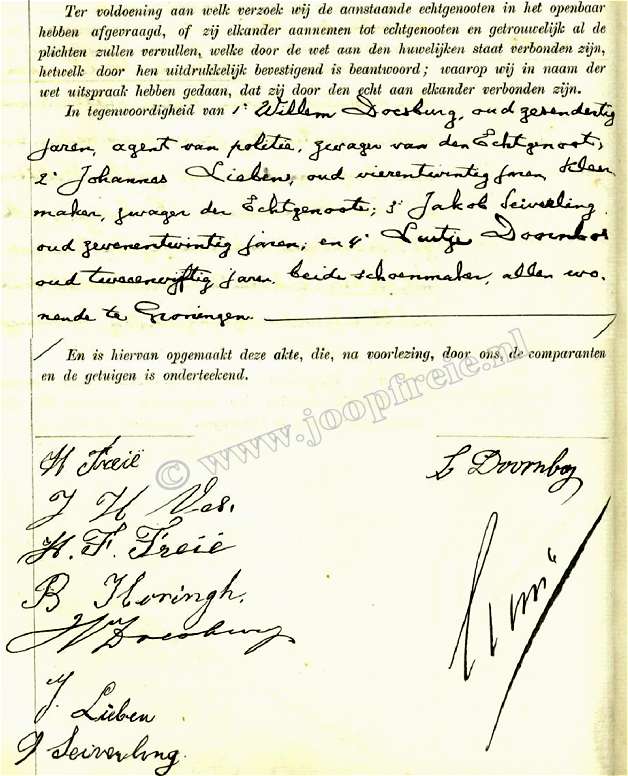 Ter voldoening aan welk verzoek wij de aanstaande echtgenooten in het openbaar
hebben afgevraagd, of zij elkander aannemen tot echtgenooten en getrouwelijk al de
plichten zullen vervullen, welke door de wet aan den huwelijken staat verbonden zijn,
hetwelk door hen uitdrukkelijk bevestigend is beantwoord; waarop wij in naam der
wet uitspraak hebben gedaan, dat zij door den echt aan elkander verbonden zijn.
In tegenwoordigheid van 1° Willem Doesburg, oud zesendertig
jaren, agent van politie, zwager van den Echtgenoot;
2° Johannes Lieben, oud vierentwintig jaren, kleer
maker, zwager der Echtgenoote; 3° Jakob Seiverling,
oud zevenentwintig jaren; en 4° Luitje Doornbos
oud tweeenvijftig jaren, beide schoenmaker, allen wo-
nende te Groningen.
En is hiervan opgemaakt deze akte, die, na voorlezing, door ons, de comparanten
en de getuigen is onderteekend.
© www.joopfreie.nl
H Freië
L Doornbos
J H Vos.
H. F. Freië
B Horingh.
W Doesburg
J. Lieben
J Seiverling.